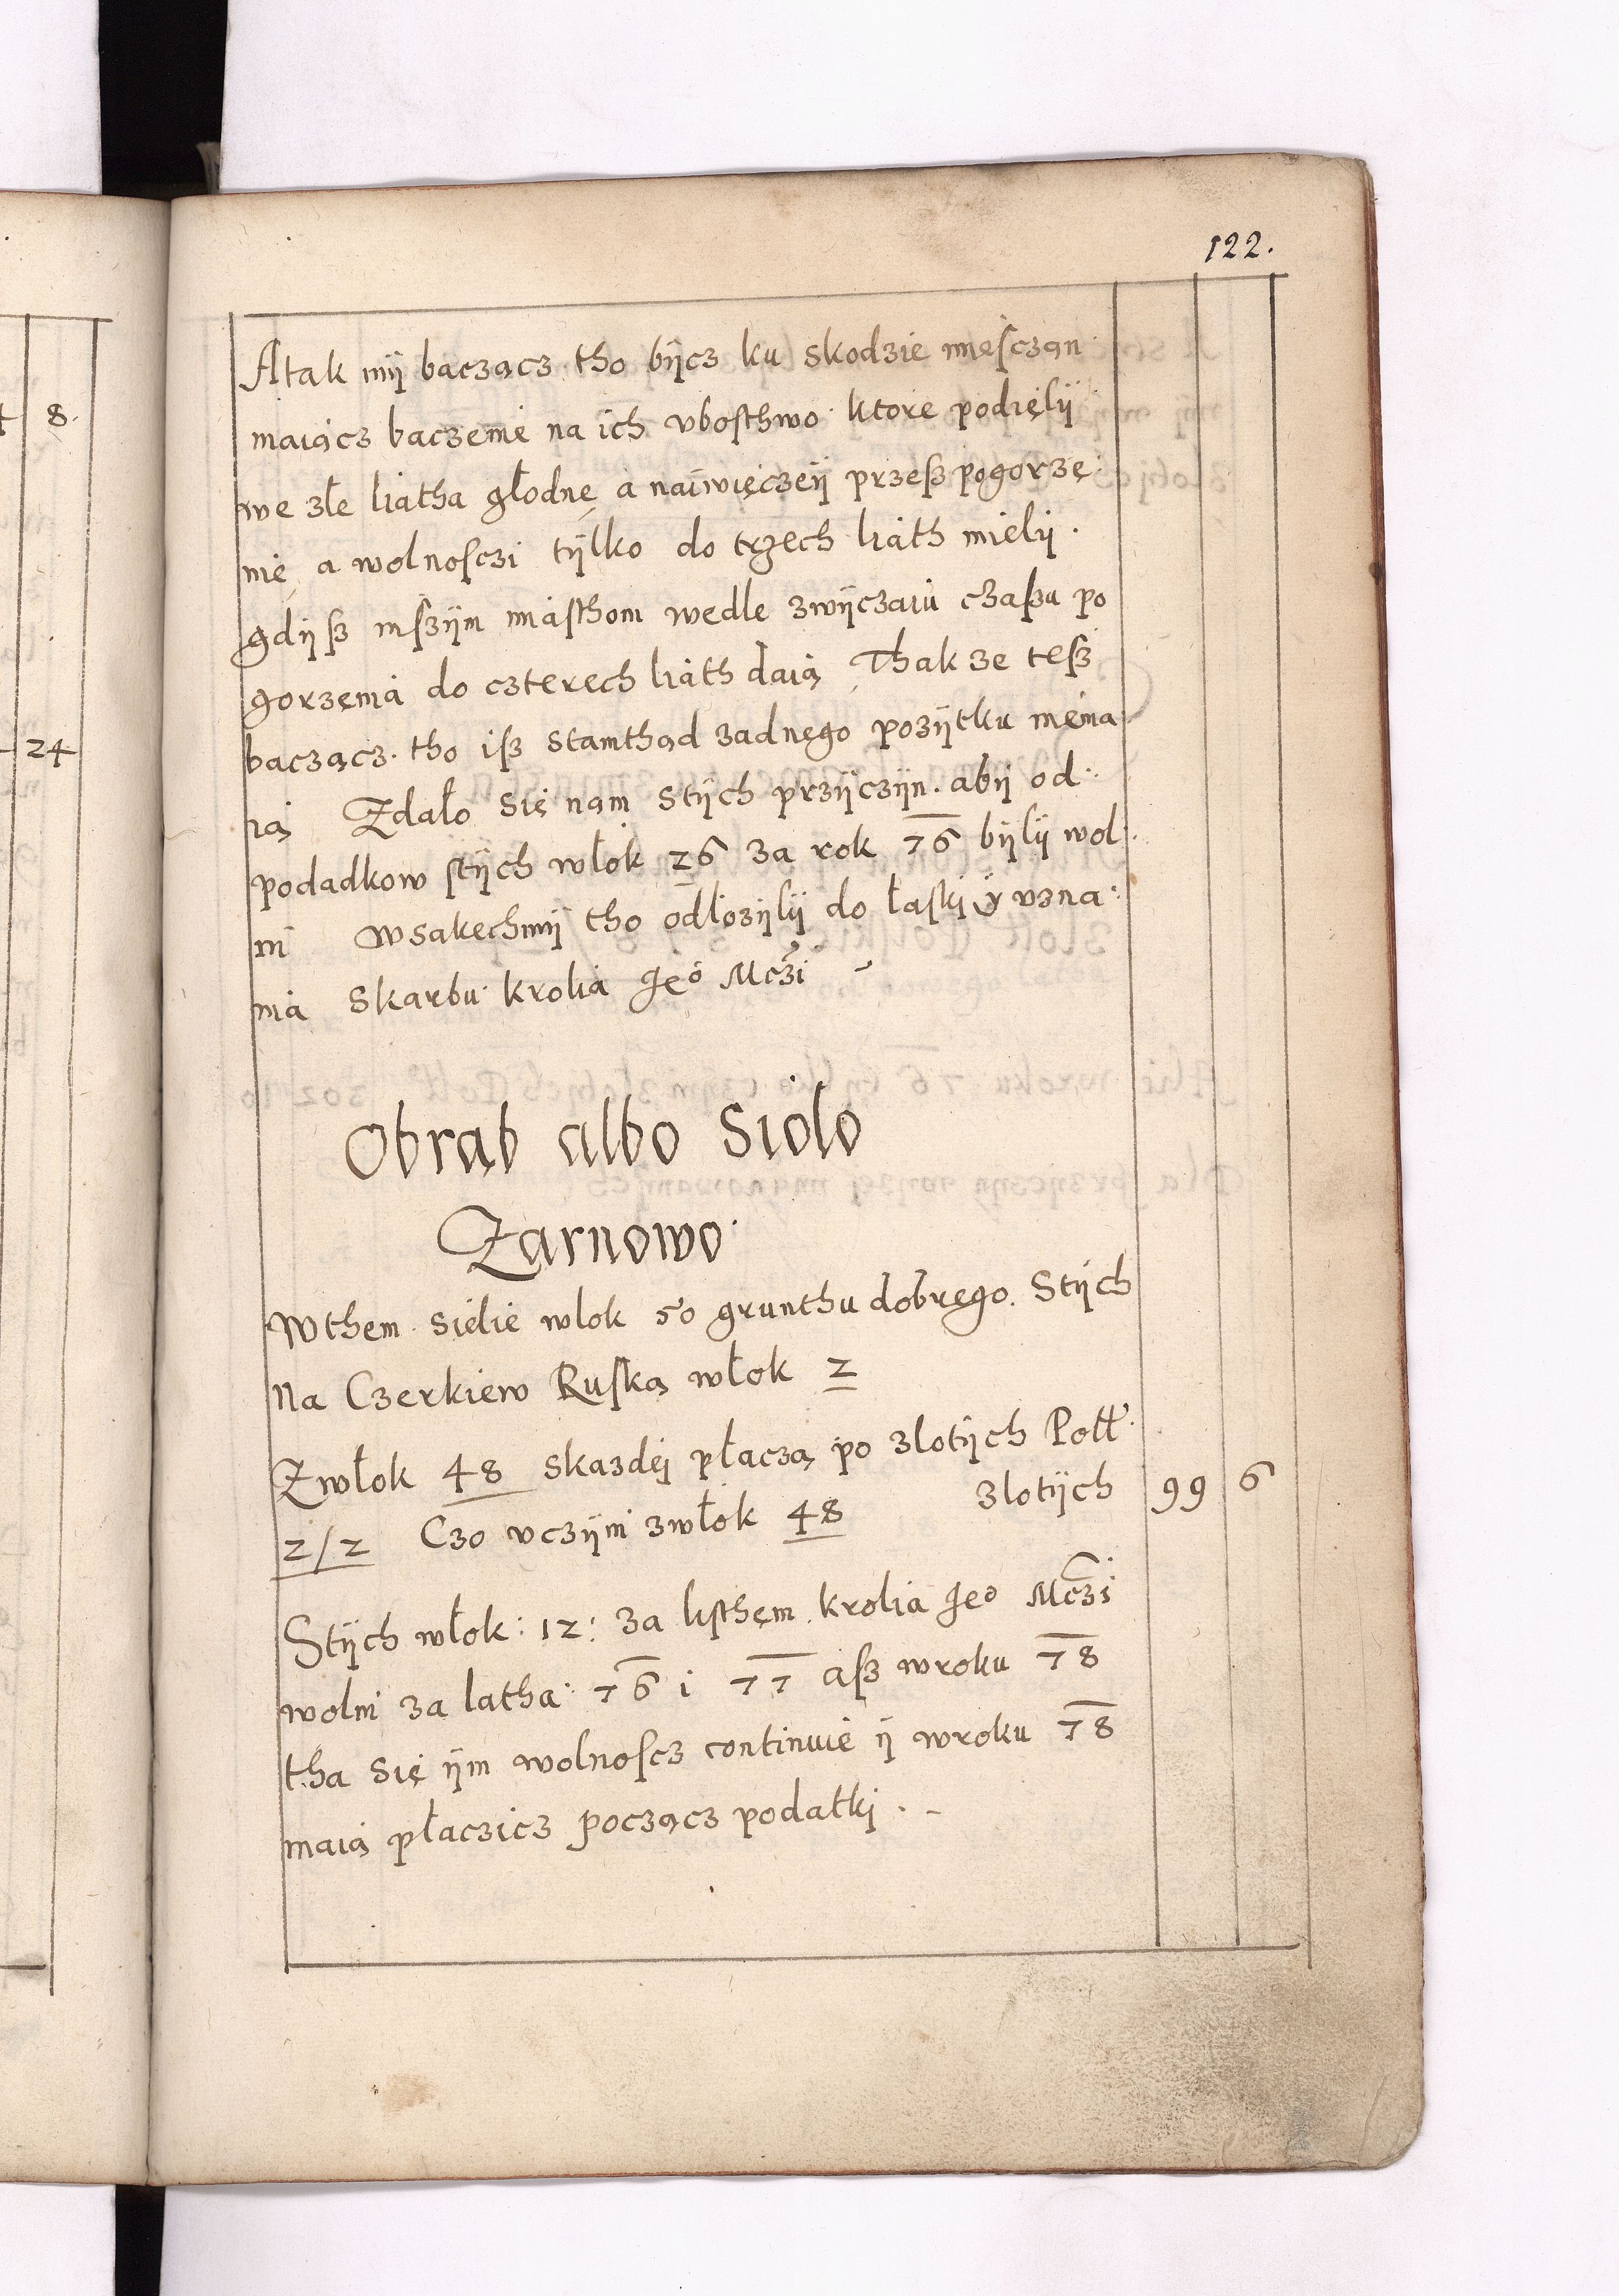 122.
Atak mÿ baczącz tho bÿcz ku skodzie miesczan
maiącz baczenie na ich vbosthwo ktore podięlÿ
we złe liatha głodnę a naiwięczeÿ przesz pogorzę
nię a wolnosczi tÿlko do trzech liath mielÿ.
gdÿsz inszÿm miasthom wedle zwÿczaiu czaszu po
gorzęnia do czterech liath daią Thak ze tesz
baczącz tho isz stamthąd zadnęgo pozÿtku niema
ią Zdało się nam stÿch przÿczÿn abÿ od
podadkow stÿch włok 26 za rok 76 bÿlÿ wol
ni wsakechmÿ tho odłozÿlÿ do łaski ÿ vzna
nia Skarbu krolia Jeo Mczi
Obrąb albo Siolo
Zarnowo
Wthem sielie wlok 50 grunthu dobręgo. Stÿch
Na Czerkiew Ruską włok 2
Zwłok 48 skazdęj płaczą po zlotÿch Poll
2/2 Czo vczÿni zwłok 48 zlotÿch 99 6
Stÿch włok: 12: za listhęm krolia Jeo Mczi
wolni za latha 76 i 77 asz wroku 78
tha się ÿm wolnoscz continuie ÿ wroku 78
maią płaczicz począcz podatki.
8.
24